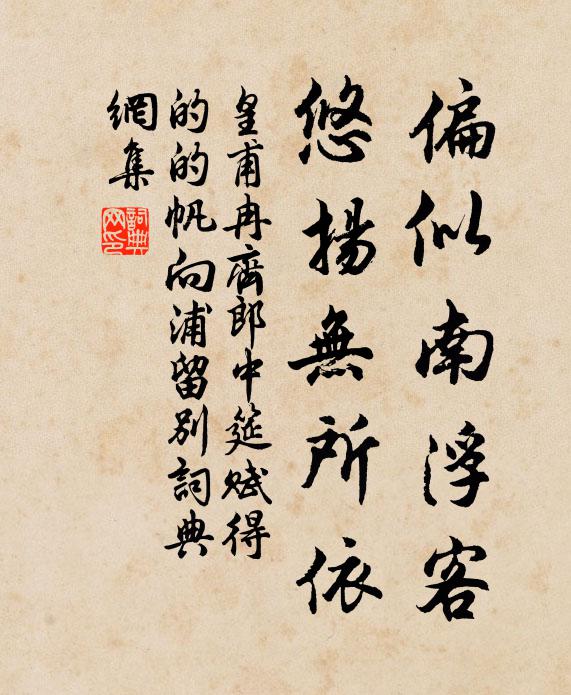 偏似南浮客
悠揚無所依
皇甫冉齊郎中筵賦得
的的帆向浦留別詞典
網集
詞典網印